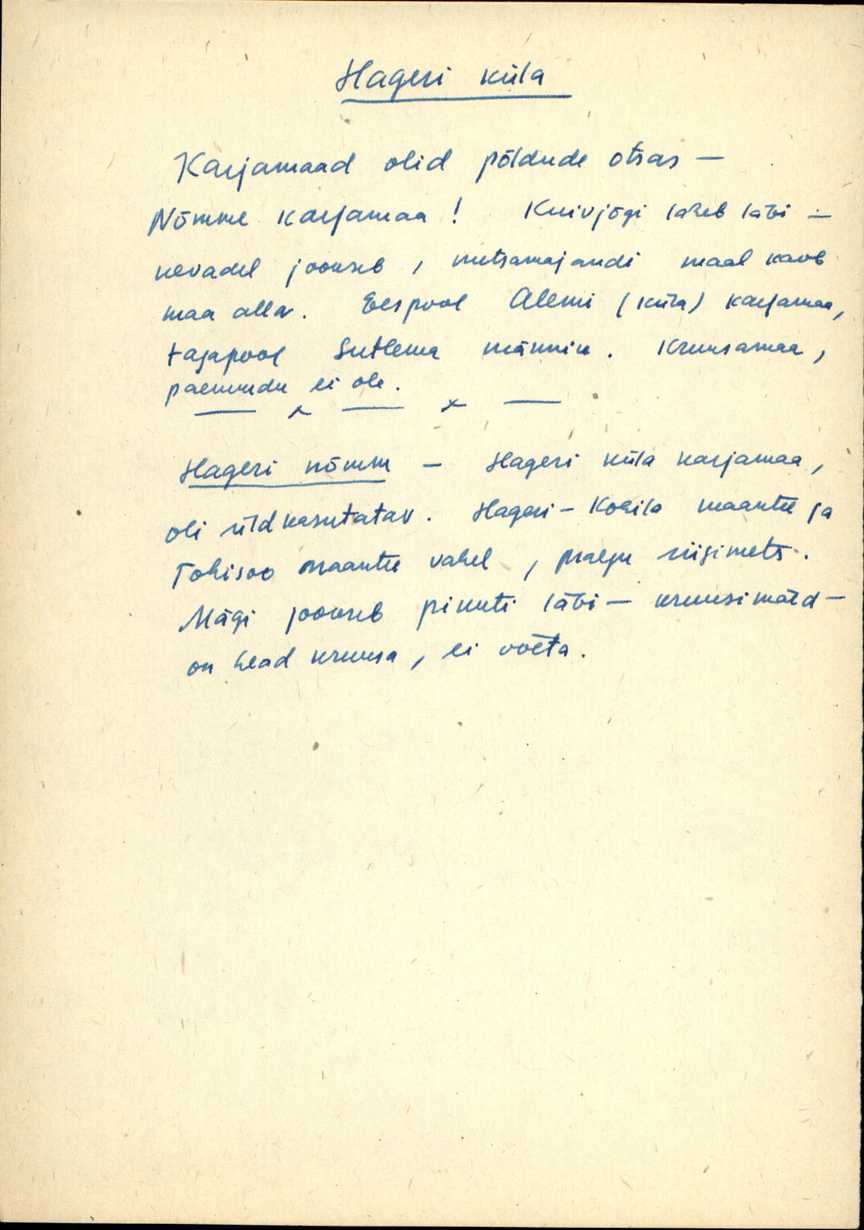 Hageri küla
Karjamaad olid põldude otsas —
Nõmme karjamaa! Kuivjõgi läheb läbi —
kevadel jookseb, metsamajandi maal kaob
maa alla. Eespool Alemi (küla) karjamaa,
tagapool Sutlema männik. Kruusamaa,
paemurdu ei ole.
— x — x —
Hageri nõmm — Hageri küla karjamaa,
oli üldkasutatav. Hageri-Kohila maantee ja
Tohisoo maantee vahel, praegu riigimets.
Mägi jookseb pikuti läbi — kruusimäed —
on head kruusa, ei võeta.